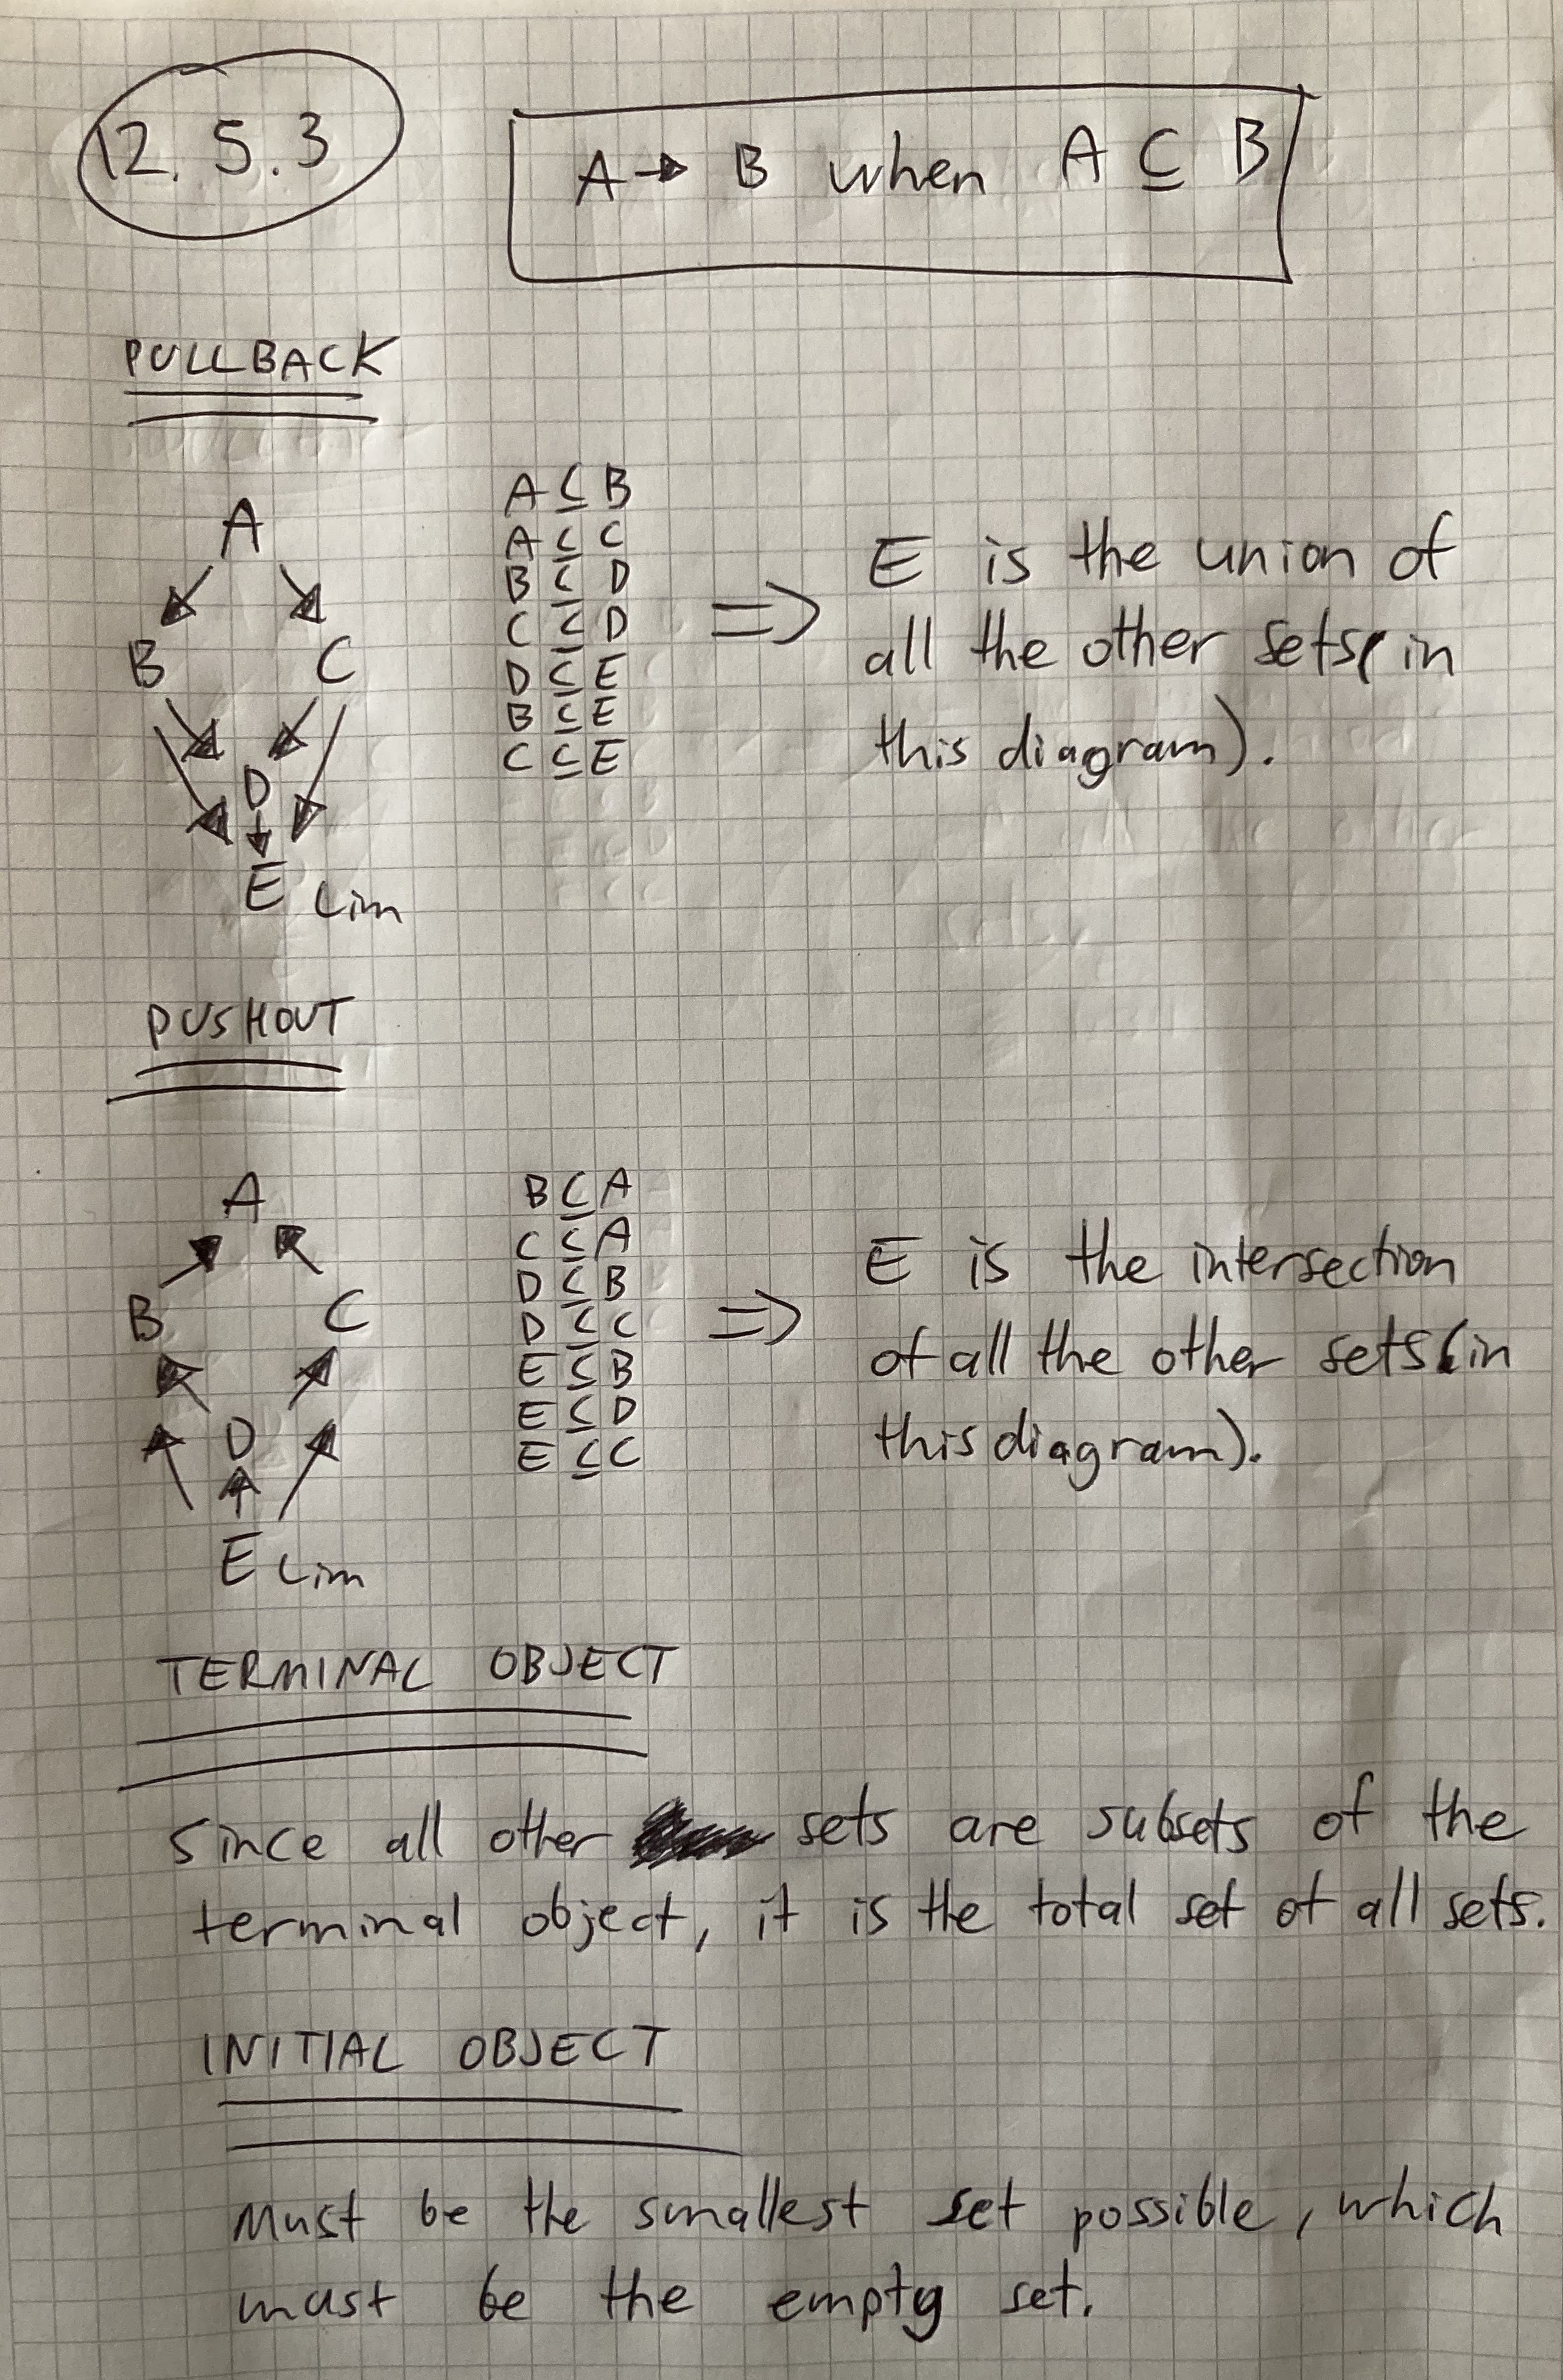 12.5.3
A → B when A ⊆ B
PULLBACK
A
B C
D
E Lim
A ⊆ B
A ⊆ C
B ⊆ D
C ⊆ D
D ⊆ E
B ⊆ E
C ⊆ E
⇒
E is the union of
all the other sets(in
this diagram).
PUSHOUT
A
B C
D
E Lim
B ⊆ A
C ⊆ A
D ⊆ B
D ⊆ C
E ⊆ B
E ⊆ D
E ⊆ C
⇒
E is the intersection
of all the other sets(in
this diagram).
TERMINAL OBJECT
Since all other sets are subsets of the
terminal object, it is the total set of all sets.
INITIAL OBJECT
Must be the smallest set possible, which
must be the empty set.